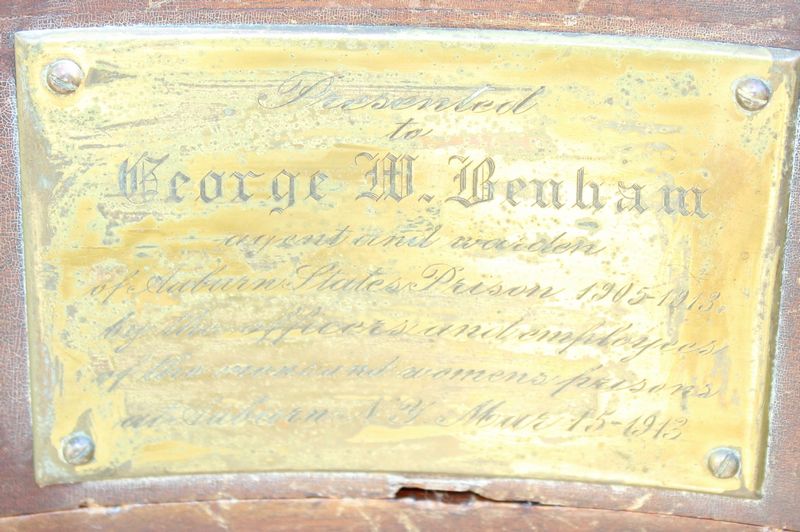 Presented
to
George W. Benham
agent and warden
of Auburn States Prison 1905-1913.
by the officers and employees
of the mens and womens prisons
at Auburn N Y Mar 15-1913